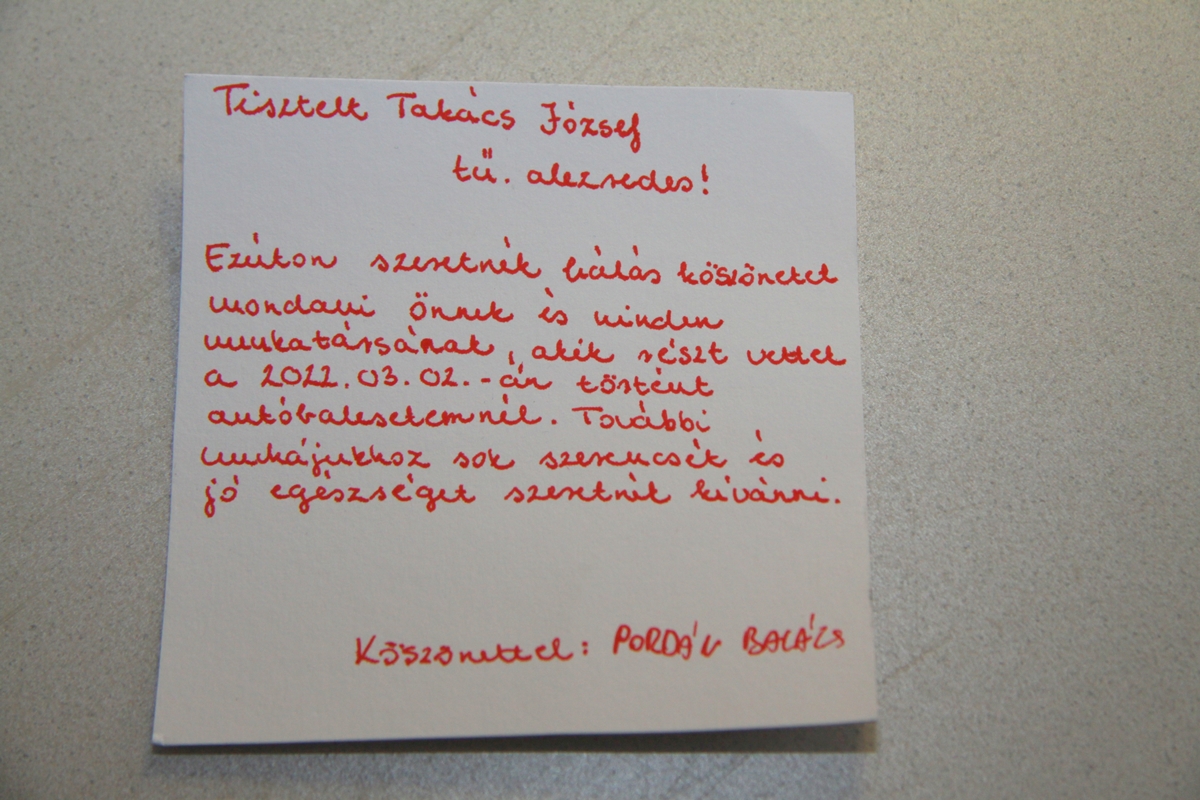 Tisztelt Takács József
tű. alezredes!
Ezúton szeretnék hálás köszönetet
mondani önnek és minden
munkatársának, akik részt vettek
a 2022.03.02.-án történt
autóbalesetemnél. További
munkájukhoz sok szerencsét és
jó egészséget szeretnék kívánni.
Köszönettel: PORDÁN BALÁZS